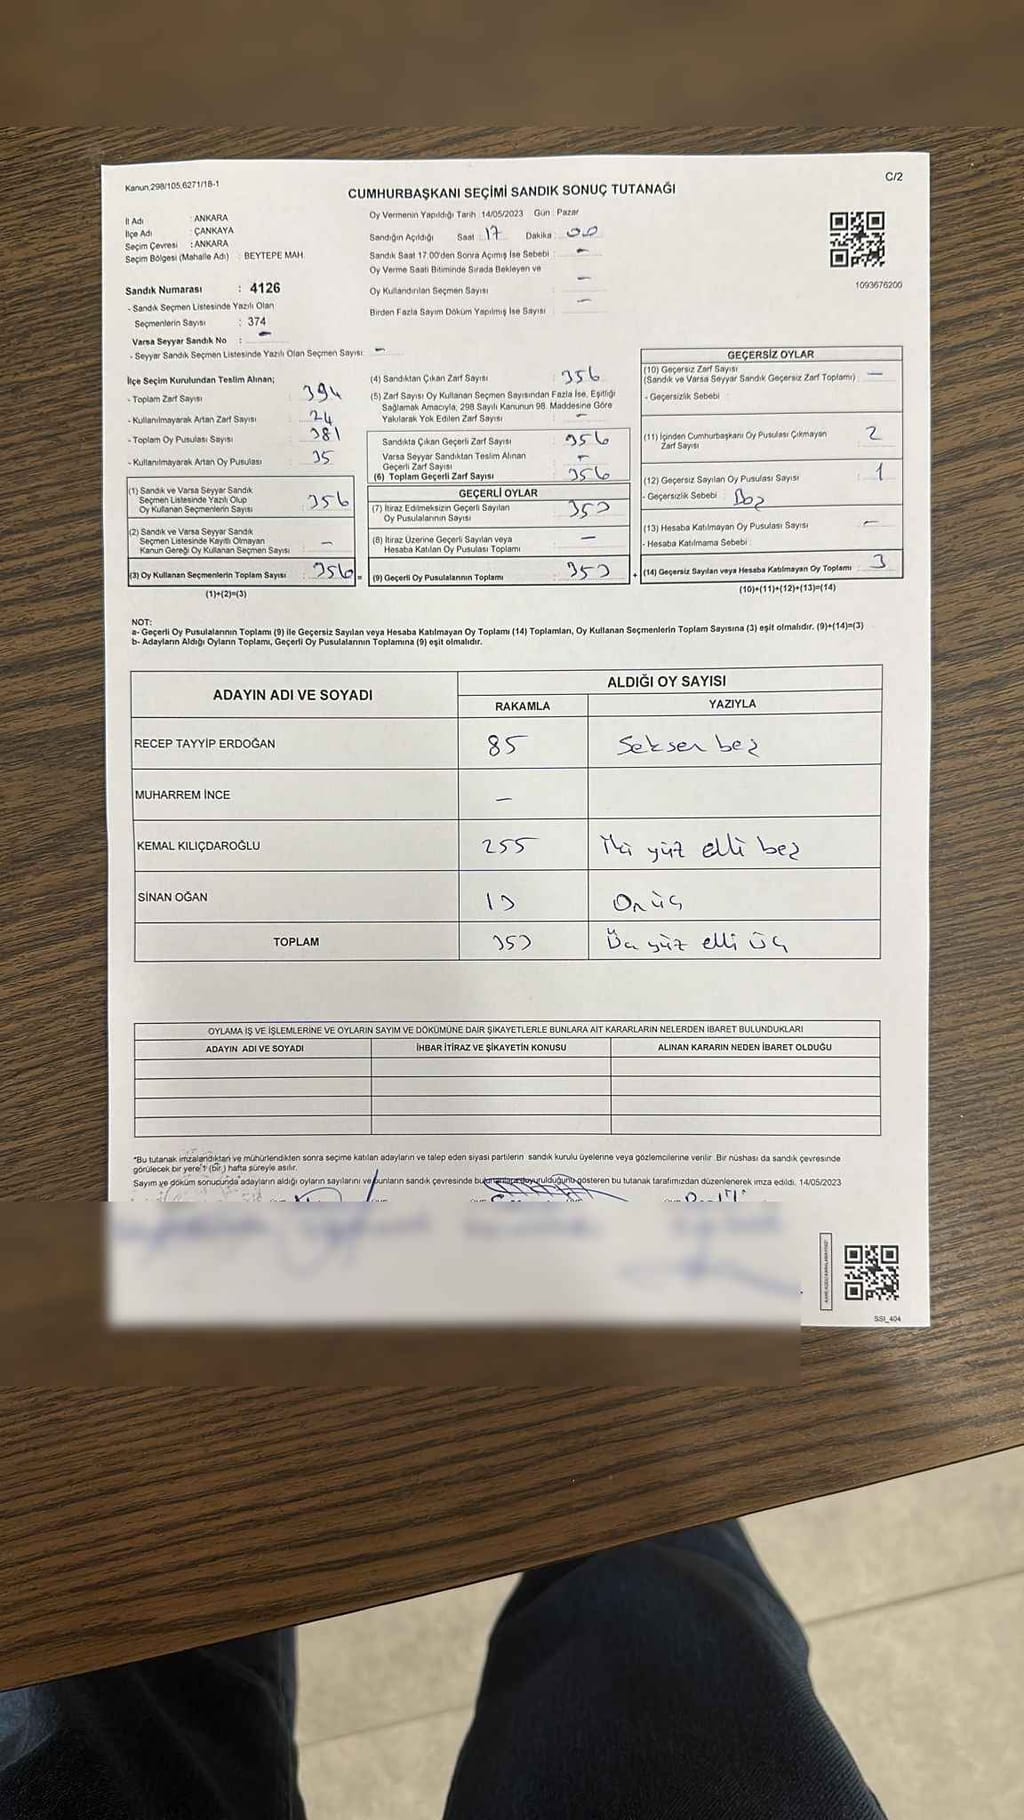 Kanun,298/105,6271/18-1
C/2
CUMHURBAŞKANI SEÇİMİ SANDIK SONUÇ TUTANAĞI
İl Adı : ANKARA
İlçe Adı : ÇANKAYA
Seçim Çevresi : ANKARA
Seçim Bölgesi (Mahalle Adı) : BEYTEPE MAH.
Sandık Numarası : 4126
- Sandık Seçmen Listesinde Yazılı Olan
Seçmenlerin Sayısı : 374
Varsa Seyyar Sandık No : -
- Seyyar Sandık Seçmen Listesinde Yazılı Olan Seçmen Sayısı: -
Oy Vermenin Yapıldığı Tarih :14/05/2023 Gün : Pazar
Sandığın Açıldığı Saat : 17 Dakika : 00
Sandık Saat 17:00'den Sonra Açımış İse Sebebi : -
Oy Verme Saati Bitiminde Sırada Bekleyen ve
Oy Kullandırılan Seçmen Sayısı : -
Birden Fazla Sayım Döküm Yapılmış İse Sayısı : -
1093676200
İlçe Seçim Kurulundan Teslim Alınan;
- Toplam Zarf Sayısı : 394
- Kullanılmayarak Artan Zarf Sayısı : 24
- Toplam Oy Pusulası Sayısı : 381
- Kullanılmayarak Artan Oy Pusulası : 35
(1) Sandık ve Varsa Seyyar Sandık
Seçmen Listesinde Yazılı Olup
Oy Kullanan Seçmenlerin Sayısı : 356
(2) Sandık ve Varsa Seyyar Sandık
Seçmen Listesinde Kayıtlı Olmayan
Kanun Gereği Oy Kullanan Seçmen Sayısı : -
(3) Oy Kullanan Seçmenlerin Toplam Sayısı : 356 =
(1)+(2)=(3)
(4) Sandıktan Çıkan Zarf Sayısı : 356
(5) Zarf Sayısı Oy Kullanan Seçmen Sayısından Fazla İse, Eşitliği
Sağlamak Amacıyla, 298 Sayılı Kanunun 98. Maddesine Göre
Yakılarak Yok Edilen Zarf Sayısı : -
Sandıkta Çıkan Geçerli Zarf Sayısı : 356
Varsa Seyyar Sandıktan Teslim Alınan
Geçerli Zarf Sayısı : -
(6) Toplam Geçerli Zarf Sayısı : 356
GEÇERLİ OYLAR
(7) İtiraz Edilmeksizin Geçerli Sayılan
Oy Pusulalarının Sayısı : 353
(8) İtiraz Üzerine Geçerli Sayılan veya
Hesaba Katılan Oy Pusulası Toplamı : -
(9) Geçerli Oy Pusulalarının Toplamı : 353 +
GEÇERSİZ OYLAR
(10) Geçersiz Zarf Sayısı
(Sandık ve Varsa Seyyar Sandık Geçersiz Zarf Toplamı) : -
- Geçersizlik Sebebi :
(11) İçinden Cumhurbaşkanı Oy Pusulası Çıkmayan
Zarf Sayısı : 2
(12) Geçersiz Sayılan Oy Pusulası Sayısı : 1
- Geçersizlik Sebebi : Boş
(13) Hesaba Katılmayan Oy Pusulası Sayısı : -
- Hesaba Katılmama Sebebi :
(14) Geçersiz Sayılan veya Hesaba Katılmayan Oy Toplamı : 3
(10)+(11)+(12)+(13)=(14)
NOT:
a- Geçerli Oy Pusulalarının Toplamı (9) ile Geçersiz Sayılan veya Hesaba Katılmayan Oy Toplamı (14) Toplamları, Oy Kullanan Seçmenlerin Toplam Sayısına (3) eşit olmalıdır. (9)+(14)=(3)
b- Adayların Aldığı Oyların Toplamı, Geçerli Oy Pusulalarının Toplamına (9) eşit olmalıdır.
ADAYIN ADI VE SOYADI
ALDIĞI OY SAYISI
RAKAMLA YAZIYLA
RECEP TAYYİP ERDOĞAN 85 Seksen beş
MUHARREM İNCE -
KEMAL KILIÇDAROĞLU 255 İki yüz elli beş
SİNAN OĞAN 13 On üç
TOPLAM 353 Üç yüz elli üç
OYLAMA İŞ VE İŞLEMLERİNE VE OYLARIN SAYIM VE DÖKÜMÜNE DAİR ŞİKAYETLERLE BUNLARA AİT KARARLARIN NELERDEN İBARET BULUNDUKLARI
ADAYIN ADI VE SOYADI İHBAR İTİRAZ VE ŞİKAYETİN KONUSU ALINAN KARARIN NEDEN İBARET OLDUĞU
*Bu tutanak imzalandıktan ve mühürlendikten sonra seçime katılan adayların ve talep eden siyasi partilerin sandık kurulu üyelerine veya gözlemcilerine verilir. Bir nüshası da sandık çevresinde
görülecek bir yere 1 (bir) hafta süreyle asılır.
Sayım ve döküm sonucunda adayların aldığı oyların sayılarını ve bunların sandık çevresinde bulunanlara duyurulduğunu gösteren bu tutanak tarafımızdan düzenlenerek imza edildi. 14/05/2023
SSI_404